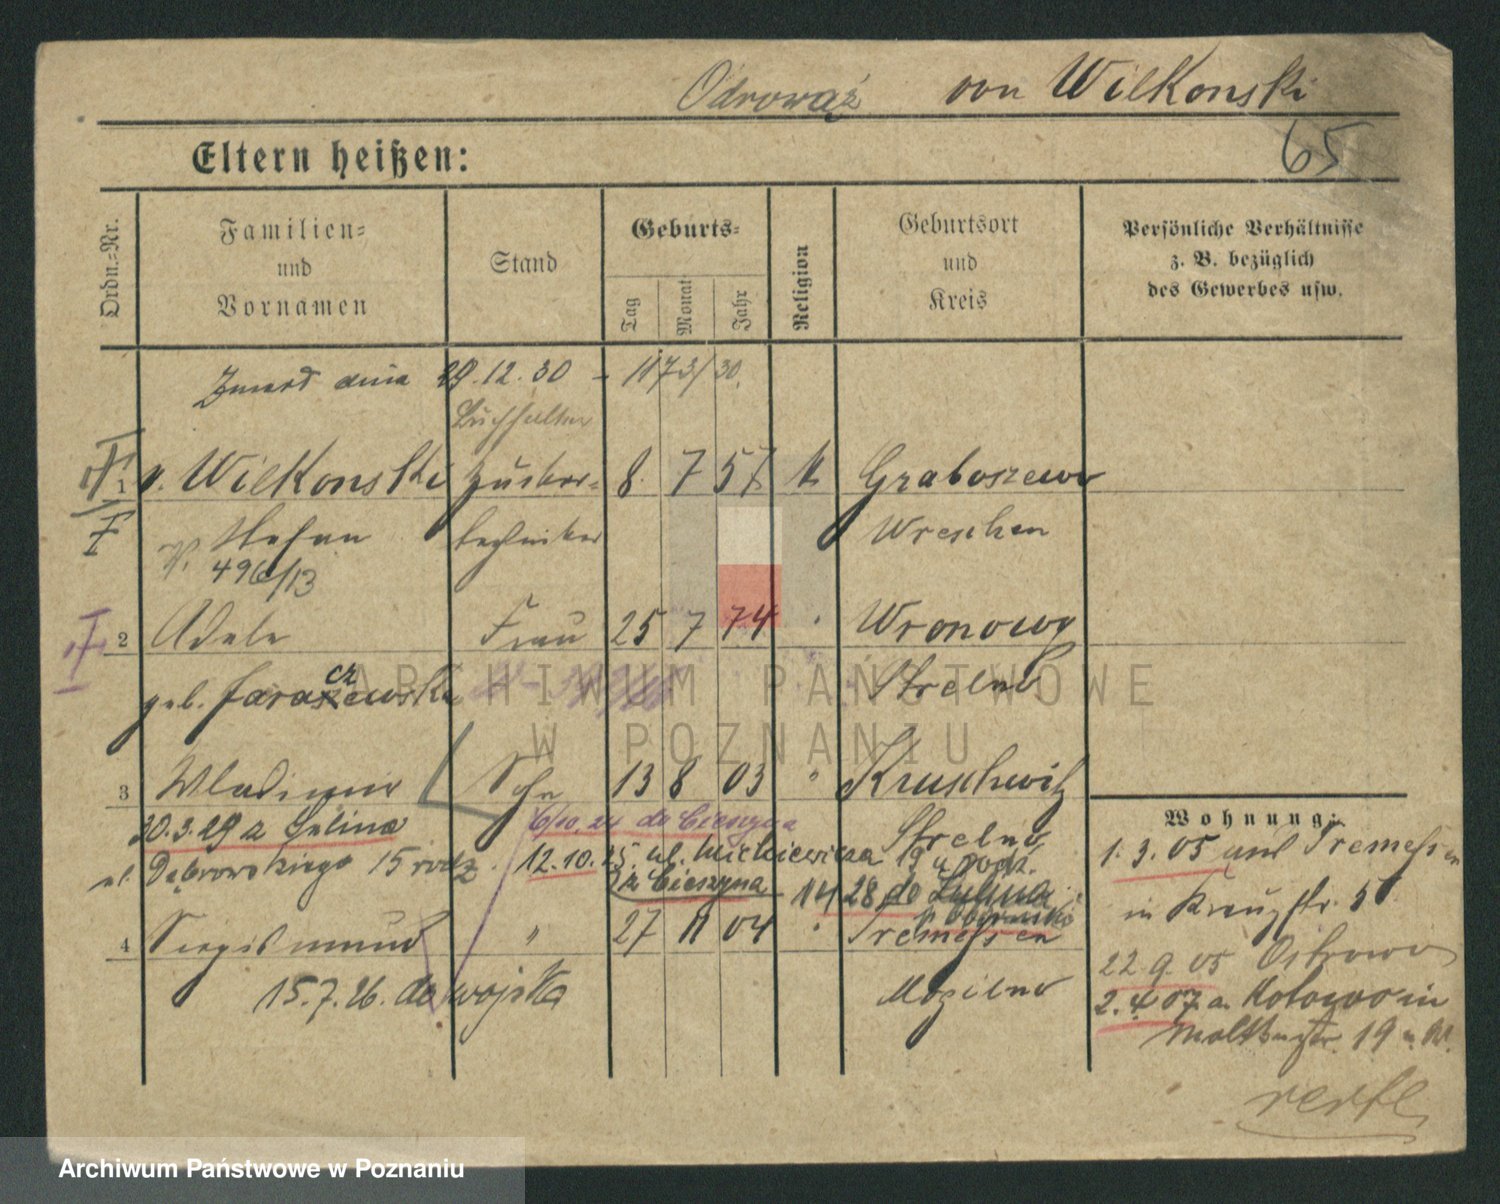 Odrowąż von Wilkonski
65
Eltern heißen:
Ordn.=Nr.
Familien=
und
Vornamen
Stand
Geburts=
Tag
Monat
Jahr
Religion
Geburtsort
und
Kreis
Persönliche Verhältnisse
z. B. bezüglich
des Gewerbes usw.
Zmarł dnia 29.12.30 - 1173/30.
Buchhalter
1 v. Wilkonski Zucker= 8. 7 57 k Graboszewo
Stefan techniker Wreschen
496/13
2 Adele Frau 25 7 74 " Wronowy
geb. Jaraczewska Strelno
3 Wladimir Sohn 13 8 03 " Kruschwitz
Strelno
Wohnung:
30.3.29 z Lulina
6/10.24 do Cieszyna
1.3.05 aus Tremessen
ul. Dąbrowskiego 15 rodz. 12.10.25. ul. Mickiewicza 19 u rodz.
z Cieszyna 14 28 do Lulina
p. Oborniki
in Kreuzstr. 5
4 Siegismund " 27 11 04 " Tremessen
15.7.26. do wojska Mogilno
22.9.05 Ostrowo
2.4.07 a. Kolowo in
Moltkestr. 19
ARCHIWUM PAŃSTWOWE
W POZNANIU
Archiwum Państwowe w Poznaniu